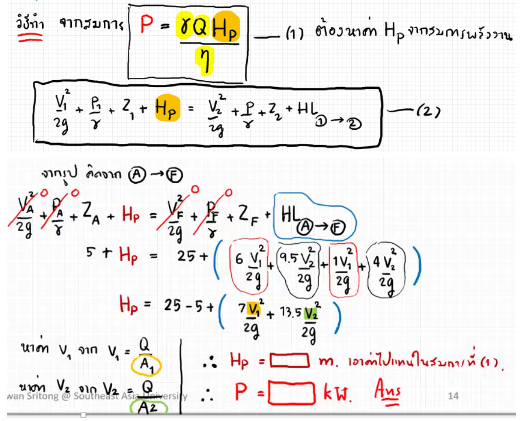 วิธีทำ จากสมการ P = γQHp / η — (1) ต้องหาค่า Hp จากสมการพลังงาน
V₁²/2g + P₁/γ + Z₁ + Hp = V₂²/2g + P/γ + Z₂ + HL ①→② — (2)
จากรูป คิดจาก Ⓐ→Ⓕ
V_A²/2g + P_A/γ + Z_A + Hp = V_F²/2g + P_F/γ + Z_F + HL Ⓐ→Ⓕ
0 0 0 0
5 + Hp = 25 + (6V₁²/2g + 9.5V₂²/2g + 1V₁²/2g + 4V₂²/2g)
Hp = 25 - 5 + (7V₁²/2g + 13.5V₂²/2g)
หาค่า V₁ จาก V₁ = Q/A₁
∴ Hp = m. เอาค่าไปแทนในสมการที่ (1).
หาค่า V₂ จาก V₂ = Q/A2
∴ P = kW. Ans
wan Sritong @ Southeast Asia University 14